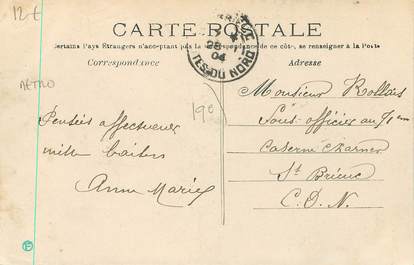 12€
CARTE POSTALE
Certains Pays Étrangers n'acceptant pas la correspondance de ce côté, se renseigner à la Poste
Correspondance
Adresse
METRO
28
04
TES-DU-NORD
19e
Pensées affectueuses
mille baisers
Anne Marie
Monsieur Rollais
Sous-officier au 71em
Caserne Charner
St Brieuc
C.D.N.